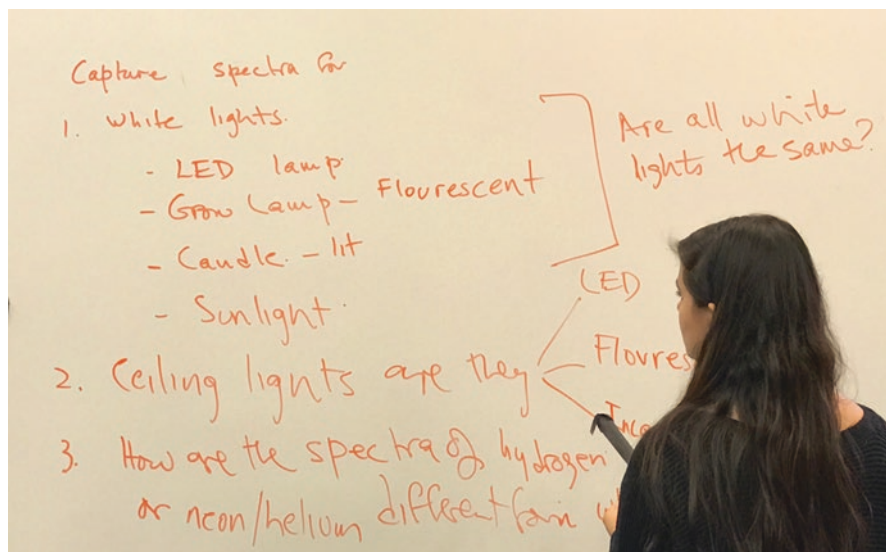 Capture spectra for
1. White lights.
- LED lamp.
- Grow Lamp - Flourescent
- Candle. - lit
- Sunlight.
Are all white
lights the same?
2. Ceiling lights are they
LED
Floures
Ince
3. How are the spectra of hydrogen
or neon/helium different from